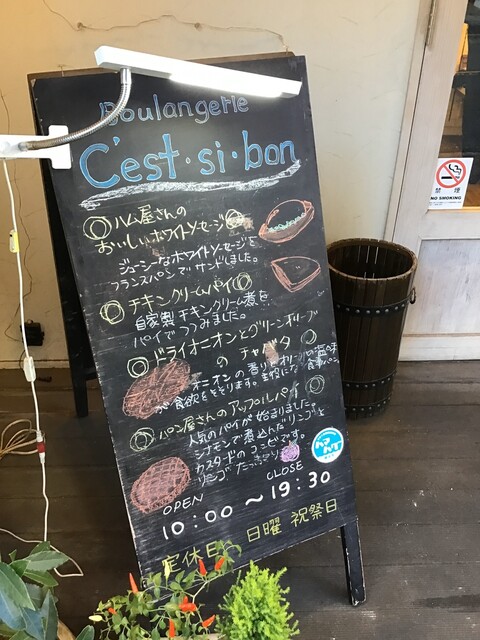 Boulangerie
C'est・si・bon
ハム屋さんの
おいしいホワイトソーセージ
ジューシーなホワイトソーセージを
フランスパンでサンドしました。
チキンクリームパイ
自家製チキンクリーム煮を
パイでつつみました。
ドライオニオンとグリーンオリーブ
の チャバタ
オニオンの香りとオリーブの塩味
が食欲をそそります。
食事パン。
パン屋さんのアップルパイ
人気のパイが始まりました。
シナモンで煮込んだリンゴと
カスタードの
リンゴたっぷり
OPEN
CLOSE
10:00 〜 19:30
定休日 日曜 祝祭日
禁煙
NO SMOKING